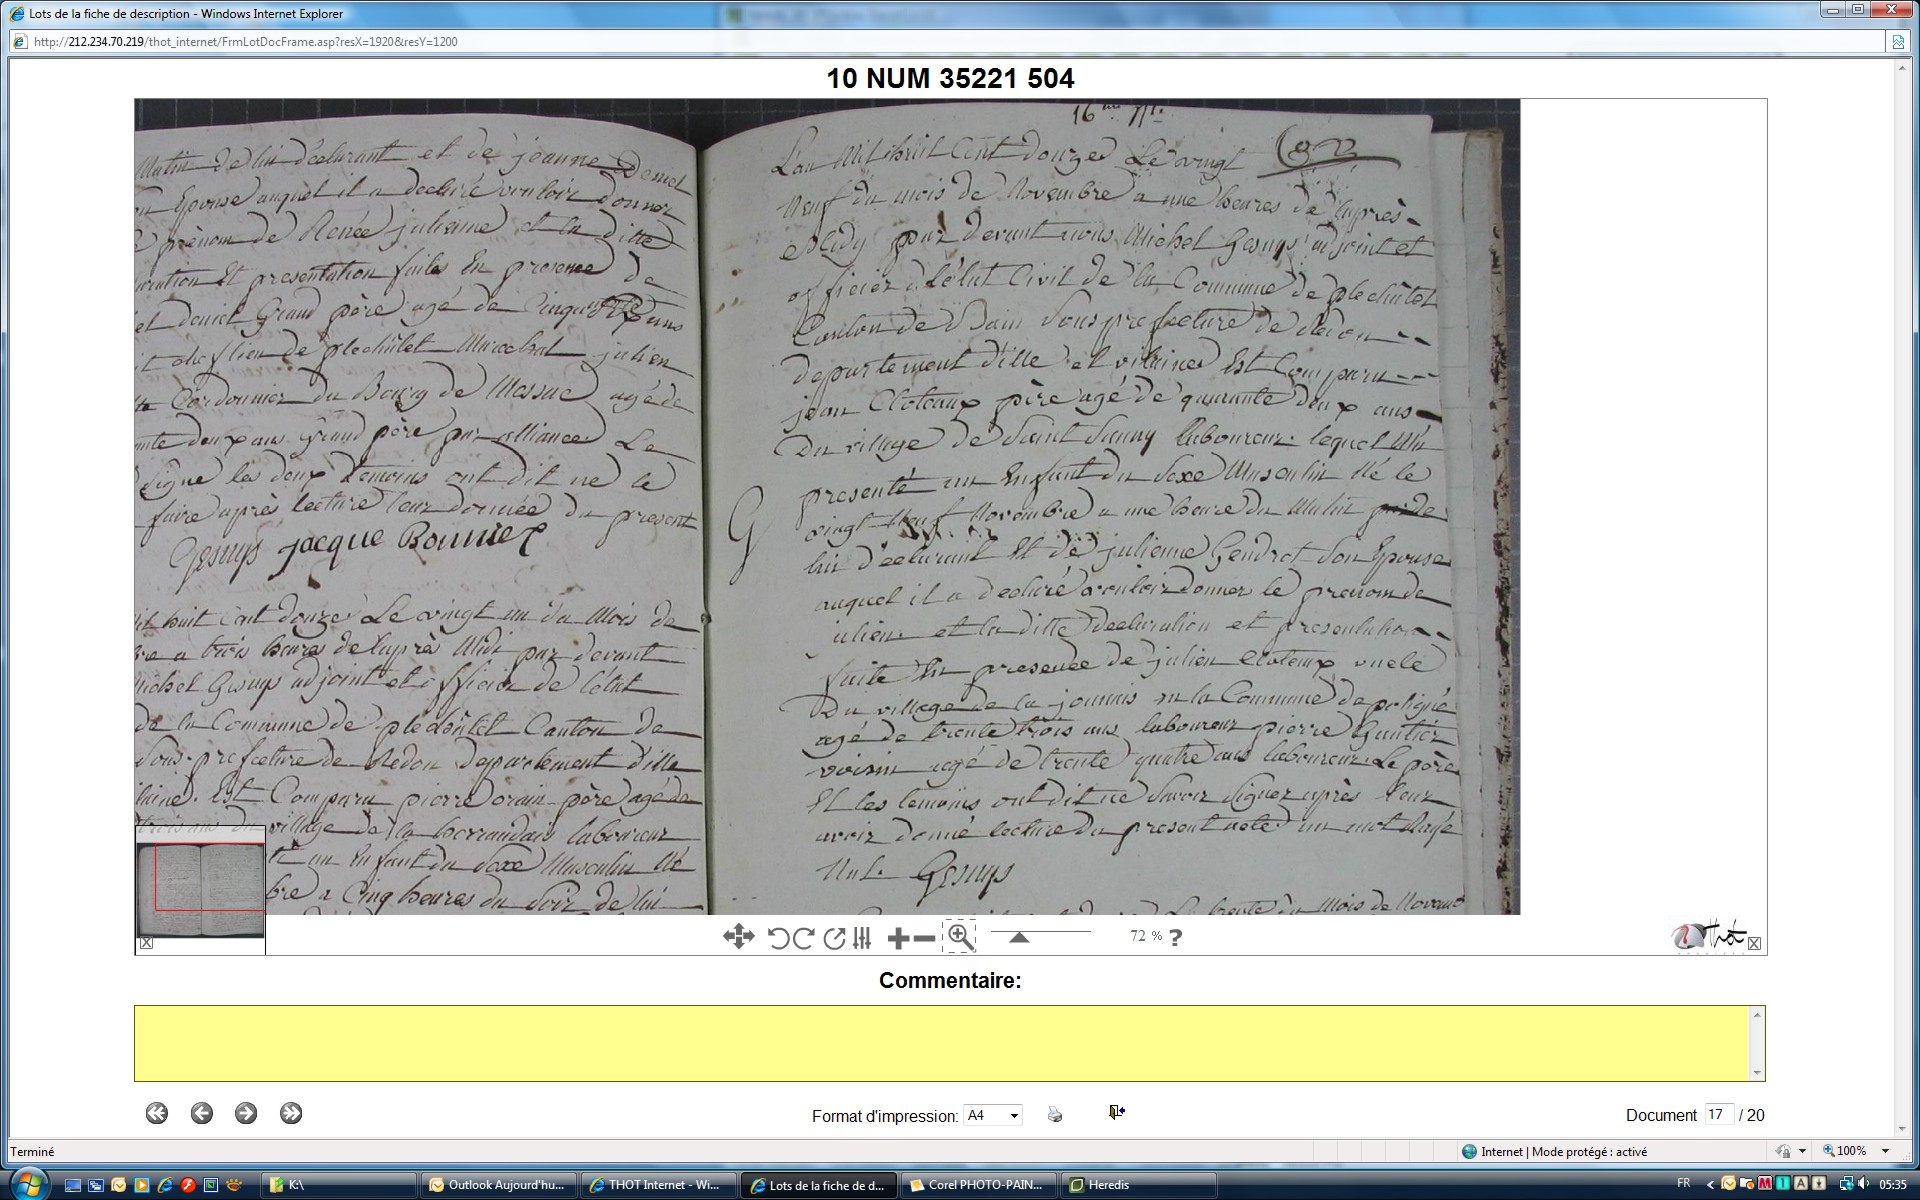 Lots de la fiche de description - Windows Internet Explorer
http://212.234.70.219/thot_internet/FrmLotDocFrame.asp?resX=1920&resY=1200
10 NUM 35221 504
Matin de lui déclarant et de jeanne Deniel
Epouse auquel il a declaré vouloir donner
prénom de Renée julienne et la ditte
ration Et presentation faites En presence de
et deniel Grand père agé de Cinquante ans
de plechâtel Marechal julien
Cordonnier du Bourg de Messac agé de
deux ans Grand père par alliance Le
Signe les deux temoins ont dit ne le
faire après lecture leur donnée du present
Gesnys jacque Bonnier
huit cent douze Le vingt un du Mois de
bre a trois heures de laprès Midi par devant
Michel Gesnys adjoint et officier de létat
de la Commune de plechâtel Canton de
Sous-prefecture de Redon Departement d'ille
laine. Est Comparu pierre orain père agé de
trois ans du village de la laboureur
té un Enfant du Sexe Masculin Né
bre a Cinq heures du Soir de lui
16me Nle.
L'an Mil huit Cent douze Le vingt
Neuf du mois de Novembre a une heures de laprès-
Midy par devant nous Michel Gesnys adjoint et
officier de L'état Civil de la Commune de plechâtel
Canton de Bain Sous prefecture de Redon --
departement d'ille et vilaine Est Comparu --
jean Cloteaux père agé de quarante deux ans
Du village de Saint laboureur lequel M'a
presenté un Enfant du Sexe Masculin Né le
vingt Neuf Novembre a une heure du Matin de
lui declarant Et de julienne Gendrot Son Epouse
auquel il a declaré vouloir donner le prenom de
julien et la ditte declaration et presentation --
G
faite En presence de julien Cloteaux oncle
Du village de la en la Commune de poligné
agé de trente trois ans laboureur pierre Gautier
voisin agé de trente quatre ans laboureur Le père
Et les temoins ont dit ne Savoir Signer après leur
avoir donné lecture du present acte un mot Rayé
Nul. Gesnys
Le trente du Mois de Novemb
72 %
?
Thot
Commentaire:
Format d'impression: A4
Document 17 / 20
Terminé
Internet | Mode protégé : activé
100%
K:\
Outlook Aujourd'hu...
THOT Internet - Wi...
Lots de la fiche de d...
Corel PHOTO-PAIN...
Heredis
FR
05:35